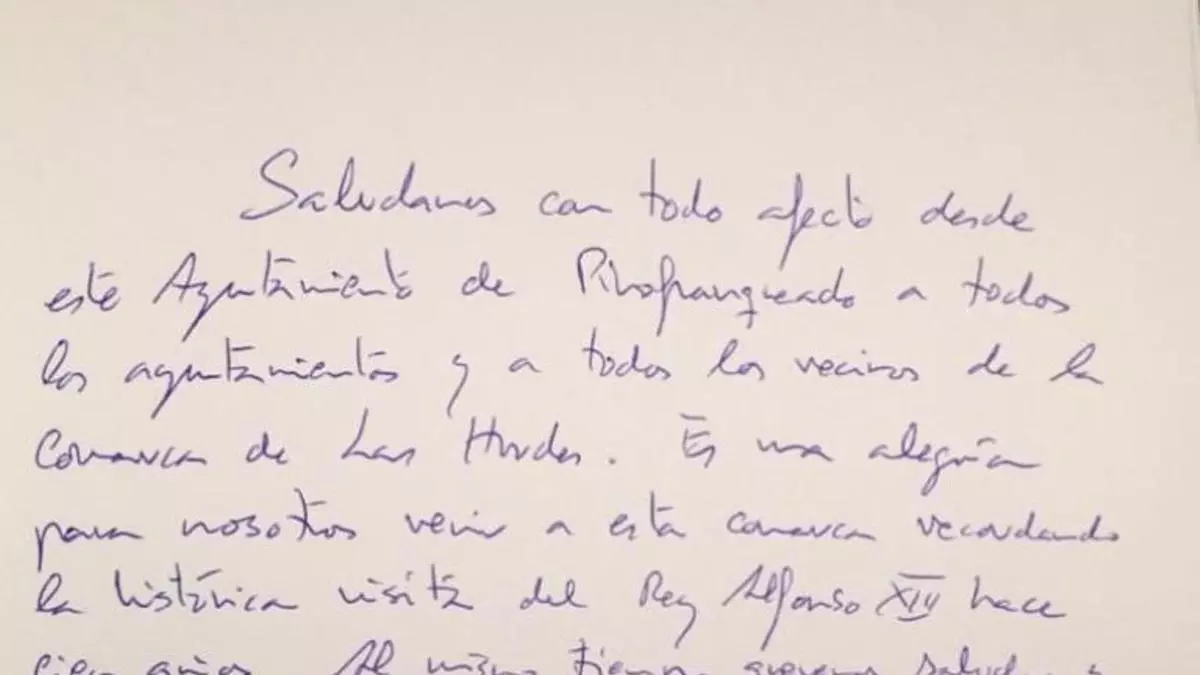 Saludamos con todo afecto desde
este Ayuntamiento de Pinofranqueado a todos
los ayuntamientos y a todos los vecinos de la
comarca de Las Hurdes. Es una alegría
para nosotros venir a esta comarca recordando
la histórica visita del Rey Alfonso XIV hace
cien años. Al mismo tiempo queremos saludar a